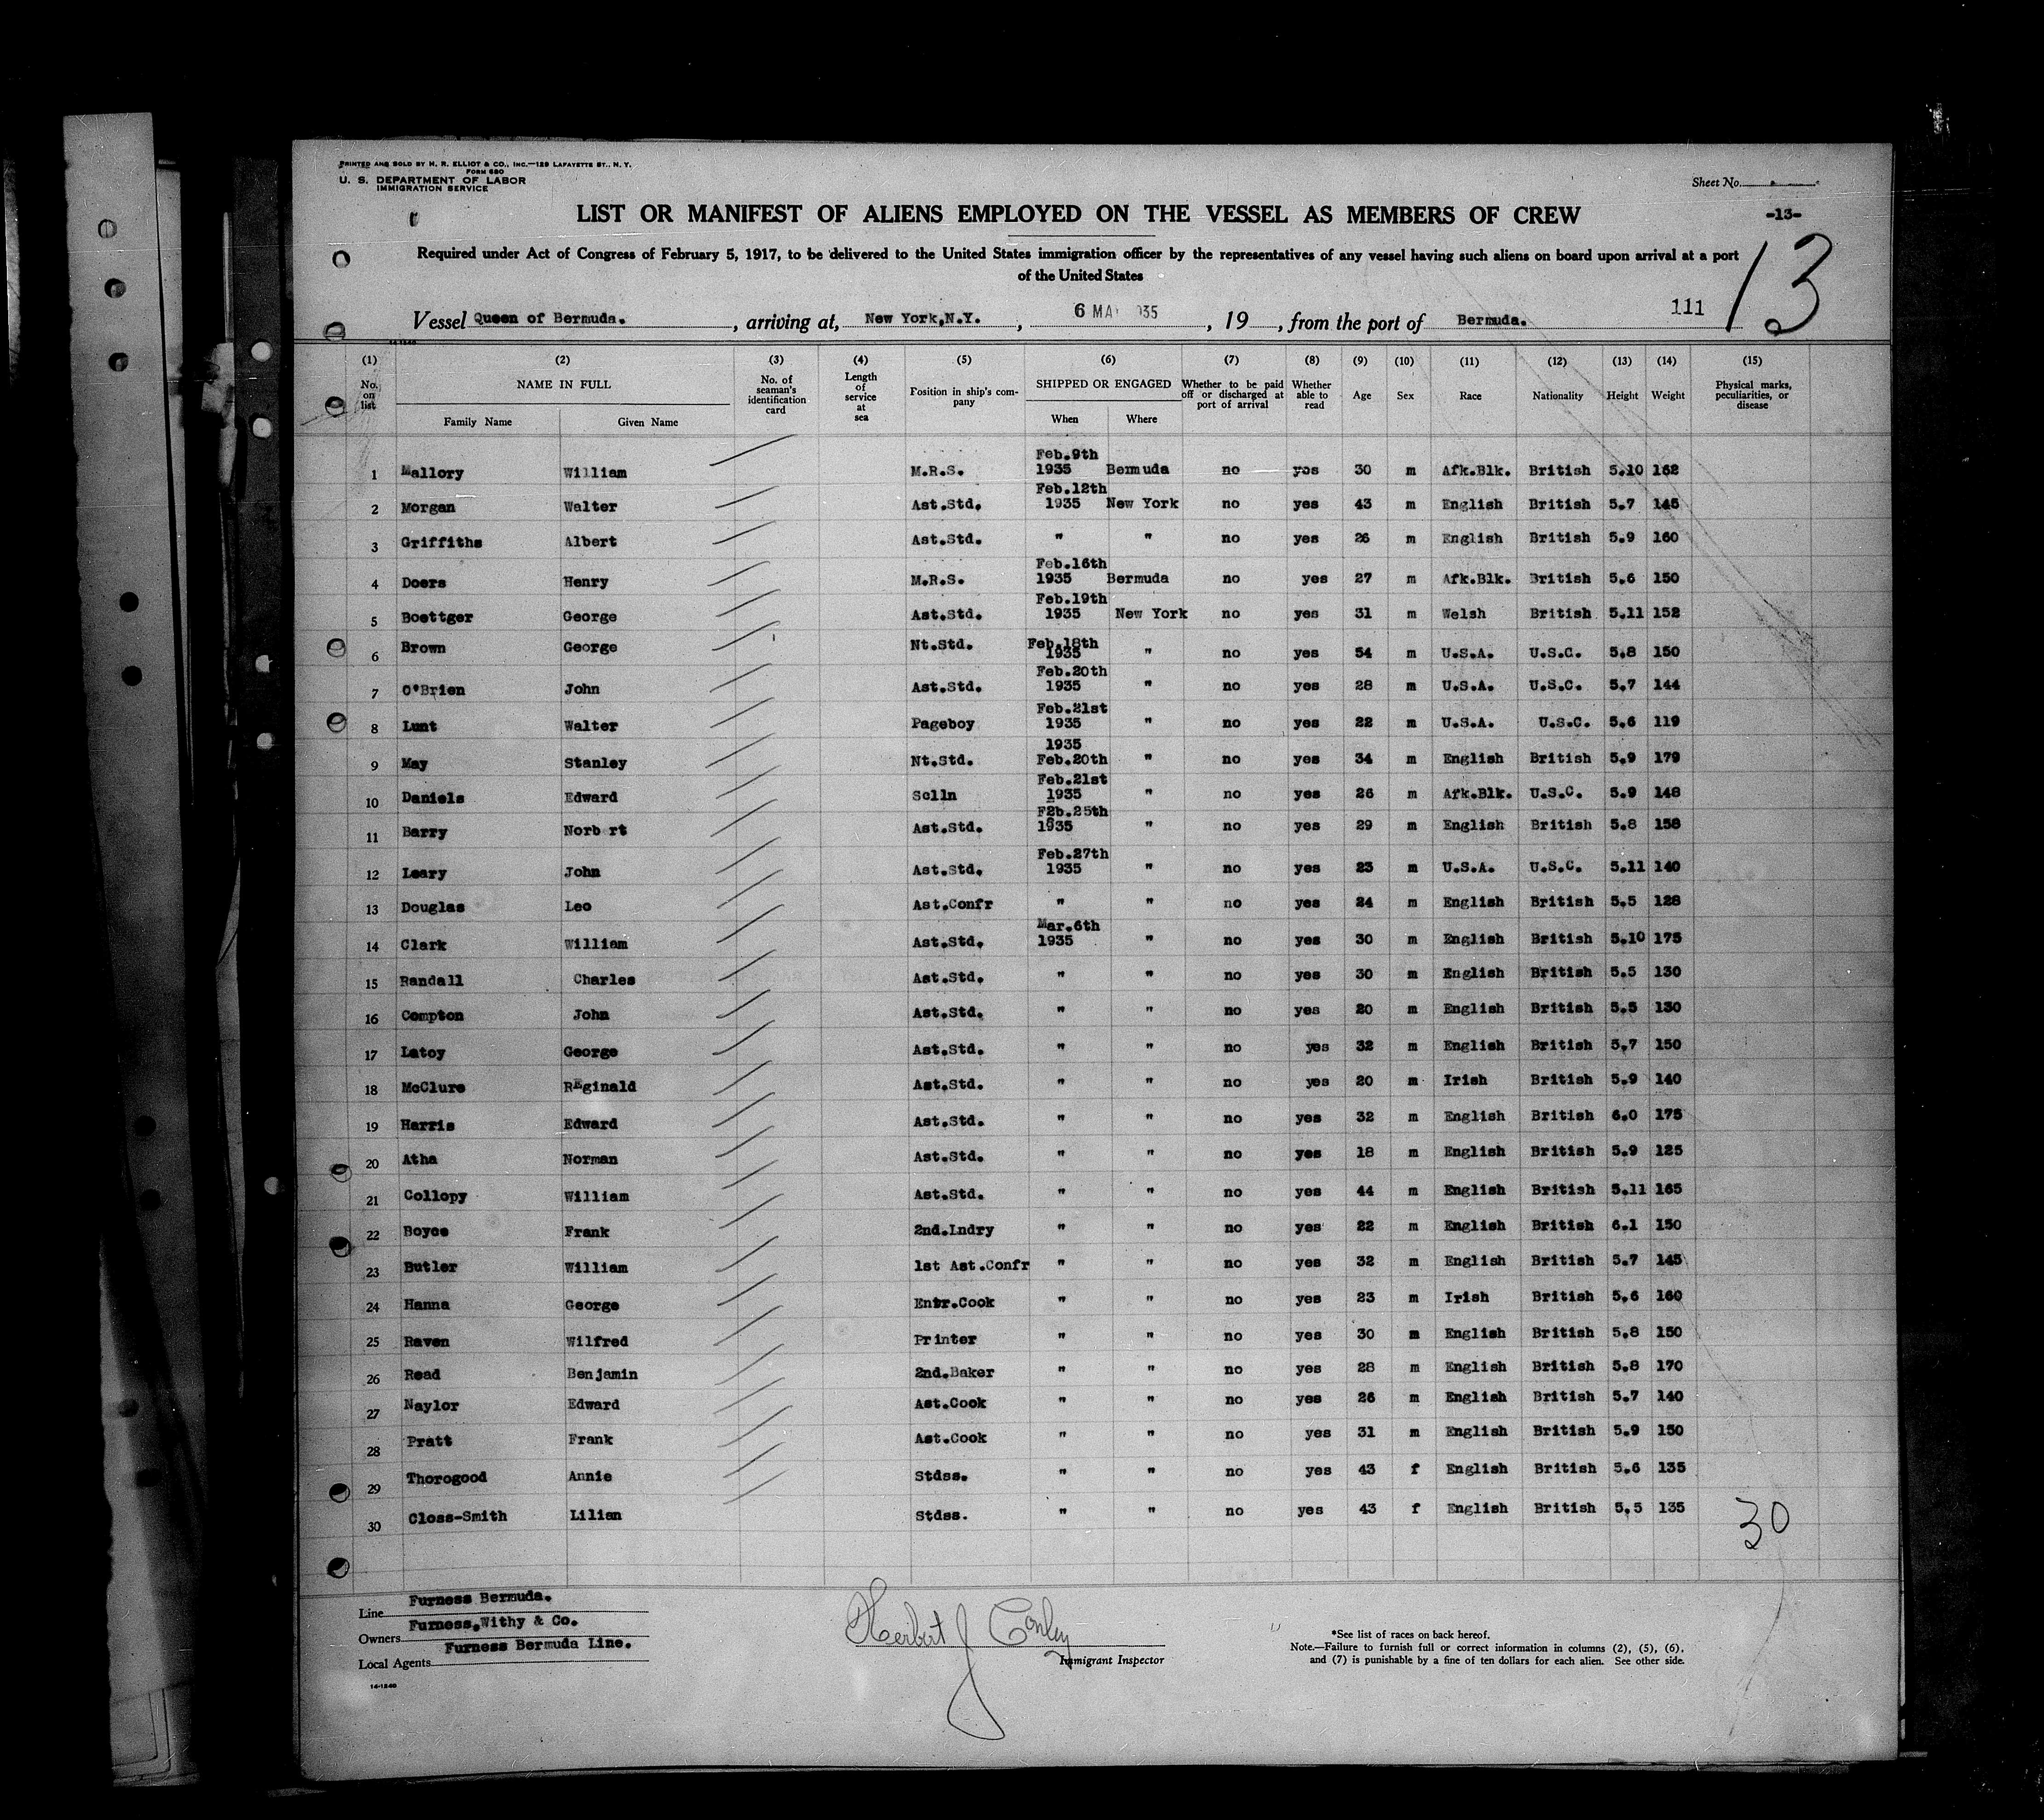 PRINTED AND SOLD BY H. R. ELLIOT & CO., INC.—129 LAFAYETTE ST., N. Y.
FORM 680
U. S. DEPARTMENT OF LABOR
IMMIGRATION SERVICE
Sheet No.
LIST OR MANIFEST OF ALIENS EMPLOYED ON THE VESSEL AS MEMBERS OF CREW
-13-
Required under Act of Congress of February 5, 1917, to be delivered to the United States immigration officer by the representatives of any vessel having such aliens on board upon arrival at a port
of the United States
13
111
Vessel Queen of Bermuda. , arriving at, New York,N.Y. , 6 MA 935 , 19 , from the port of Bermuda.
14-1240
(1) (2) (3) (4) (5) (6) (7) (8) (9) (10) (11) (12) (13) (14) (15)
No. on list NAME IN FULL No. of seaman's identification card Length of service at sea Position in ship's company SHIPPED OR ENGAGED Whether to be paid off or discharged at port of arrival Whether able to read Age Sex Race Nationality Height Weight Physical marks, peculiarities, or disease
Family Name Given Name When Where
1 Mallory William M.R.S. Feb.9th 1935 Bermuda no yes 30 m Afk.Blk. British 5.10 162
2 Morgan Walter Ast.Std. Feb.12th 1935 New York no yes 43 m English British 5.7 145
3 Griffiths Albert Ast.Std. " " no yes 26 m English British 5.9 160
4 Doers Henry M.R.S. Feb.16th 1935 Bermuda no yes 27 m Afk.Blk. British 5.6 150
5 Boettger George Ast.Std. Feb.19th 1935 New York no yes 31 m Welsh British 5.11 152
6 Brown George Nt.Std. Feb.18th 1935 " no yes 54 m U.S.A. U.S.C. 5.8 150
7 O'Brien John Ast.Std. Feb.20th 1935 " no yes 28 m U.S.A. U.S.C. 5.7 144
8 Lunt Walter Pageboy Feb.21st 1935 " no yes 22 m U.S.A. U.S.C. 5.6 119
9 May Stanley Nt.Std. 1935 Feb.20th " no yes 34 m English British 5.9 179
10 Daniels Edward Sclln Feb.21st 1935 " no yes 26 m Afk.Blk. U.S.C. 5.9 148
11 Barry Norb rt Ast.Std. Feb.25th 1935 " no yes 29 m English British 5.8 158
12 Leary John Ast.Std. Feb.27th 1935 " no yes 23 m U.S.A. U.S.C. 5.11 140
13 Douglas Leo Ast.Confr " " no yes 24 m English British 5.5 128
14 Clark William Ast.Std. Mar.6th 1935 " no yes 30 m English British 5.10 175
15 Randall Charles Ast.Std. " " no yes 30 m English British 5.5 130
16 Compton John Ast.Std. " " no yes 20 m English British 5.5 130
17 Latoy George Ast.Std. " " no yes 32 m English British 5.7 150
18 McClure REginald Ast.Std. " " no yes 20 m Irish British 5.9 140
19 Harris Edward Ast.Std. " " no yes 32 m English British 6.0 175
20 Atha Norman Ast.Std. " " no yes 18 m English British 5.9 125
21 Collopy William Ast.Std. " " no yes 44 m English British 5.11 165
22 Boyce Frank 2nd.Lndry " " no yes 22 m English British 6.1 150
23 Butler William 1st Ast.Confr " " no yes 32 m English British 5.7 145
24 Hanna George Entr.Cook " " no yes 23 m Irish British 5.6 160
25 Raven Wilfred Printer " " no yes 30 m English British 5.8 150
26 Read Benjamin 2nd.Baker " " no yes 28 m English British 5.8 170
27 Naylor Edward Ast.Cook " " no yes 26 m English British 5.7 140
28 Pratt Frank Ast.Cook " " no yes 31 m English British 5.9 150
29 Thorogood Annie Stdss. " " no yes 43 f English British 5.6 135
30 Closs-Smith Lilian Stdss. " " no yes 43 f English British 5.5 135
30
Line Furness Bermuda.
Owners Furness,Withy & Co.
Local Agents Furness Bermuda Line.
14-1240
Herbert J Conley
Immigrant Inspector
*See list of races on back hereof.
Note.—Failure to furnish full or correct information in columns (2), (5), (6),
and (7) is punishable by a fine of ten dollars for each alien. See other side.